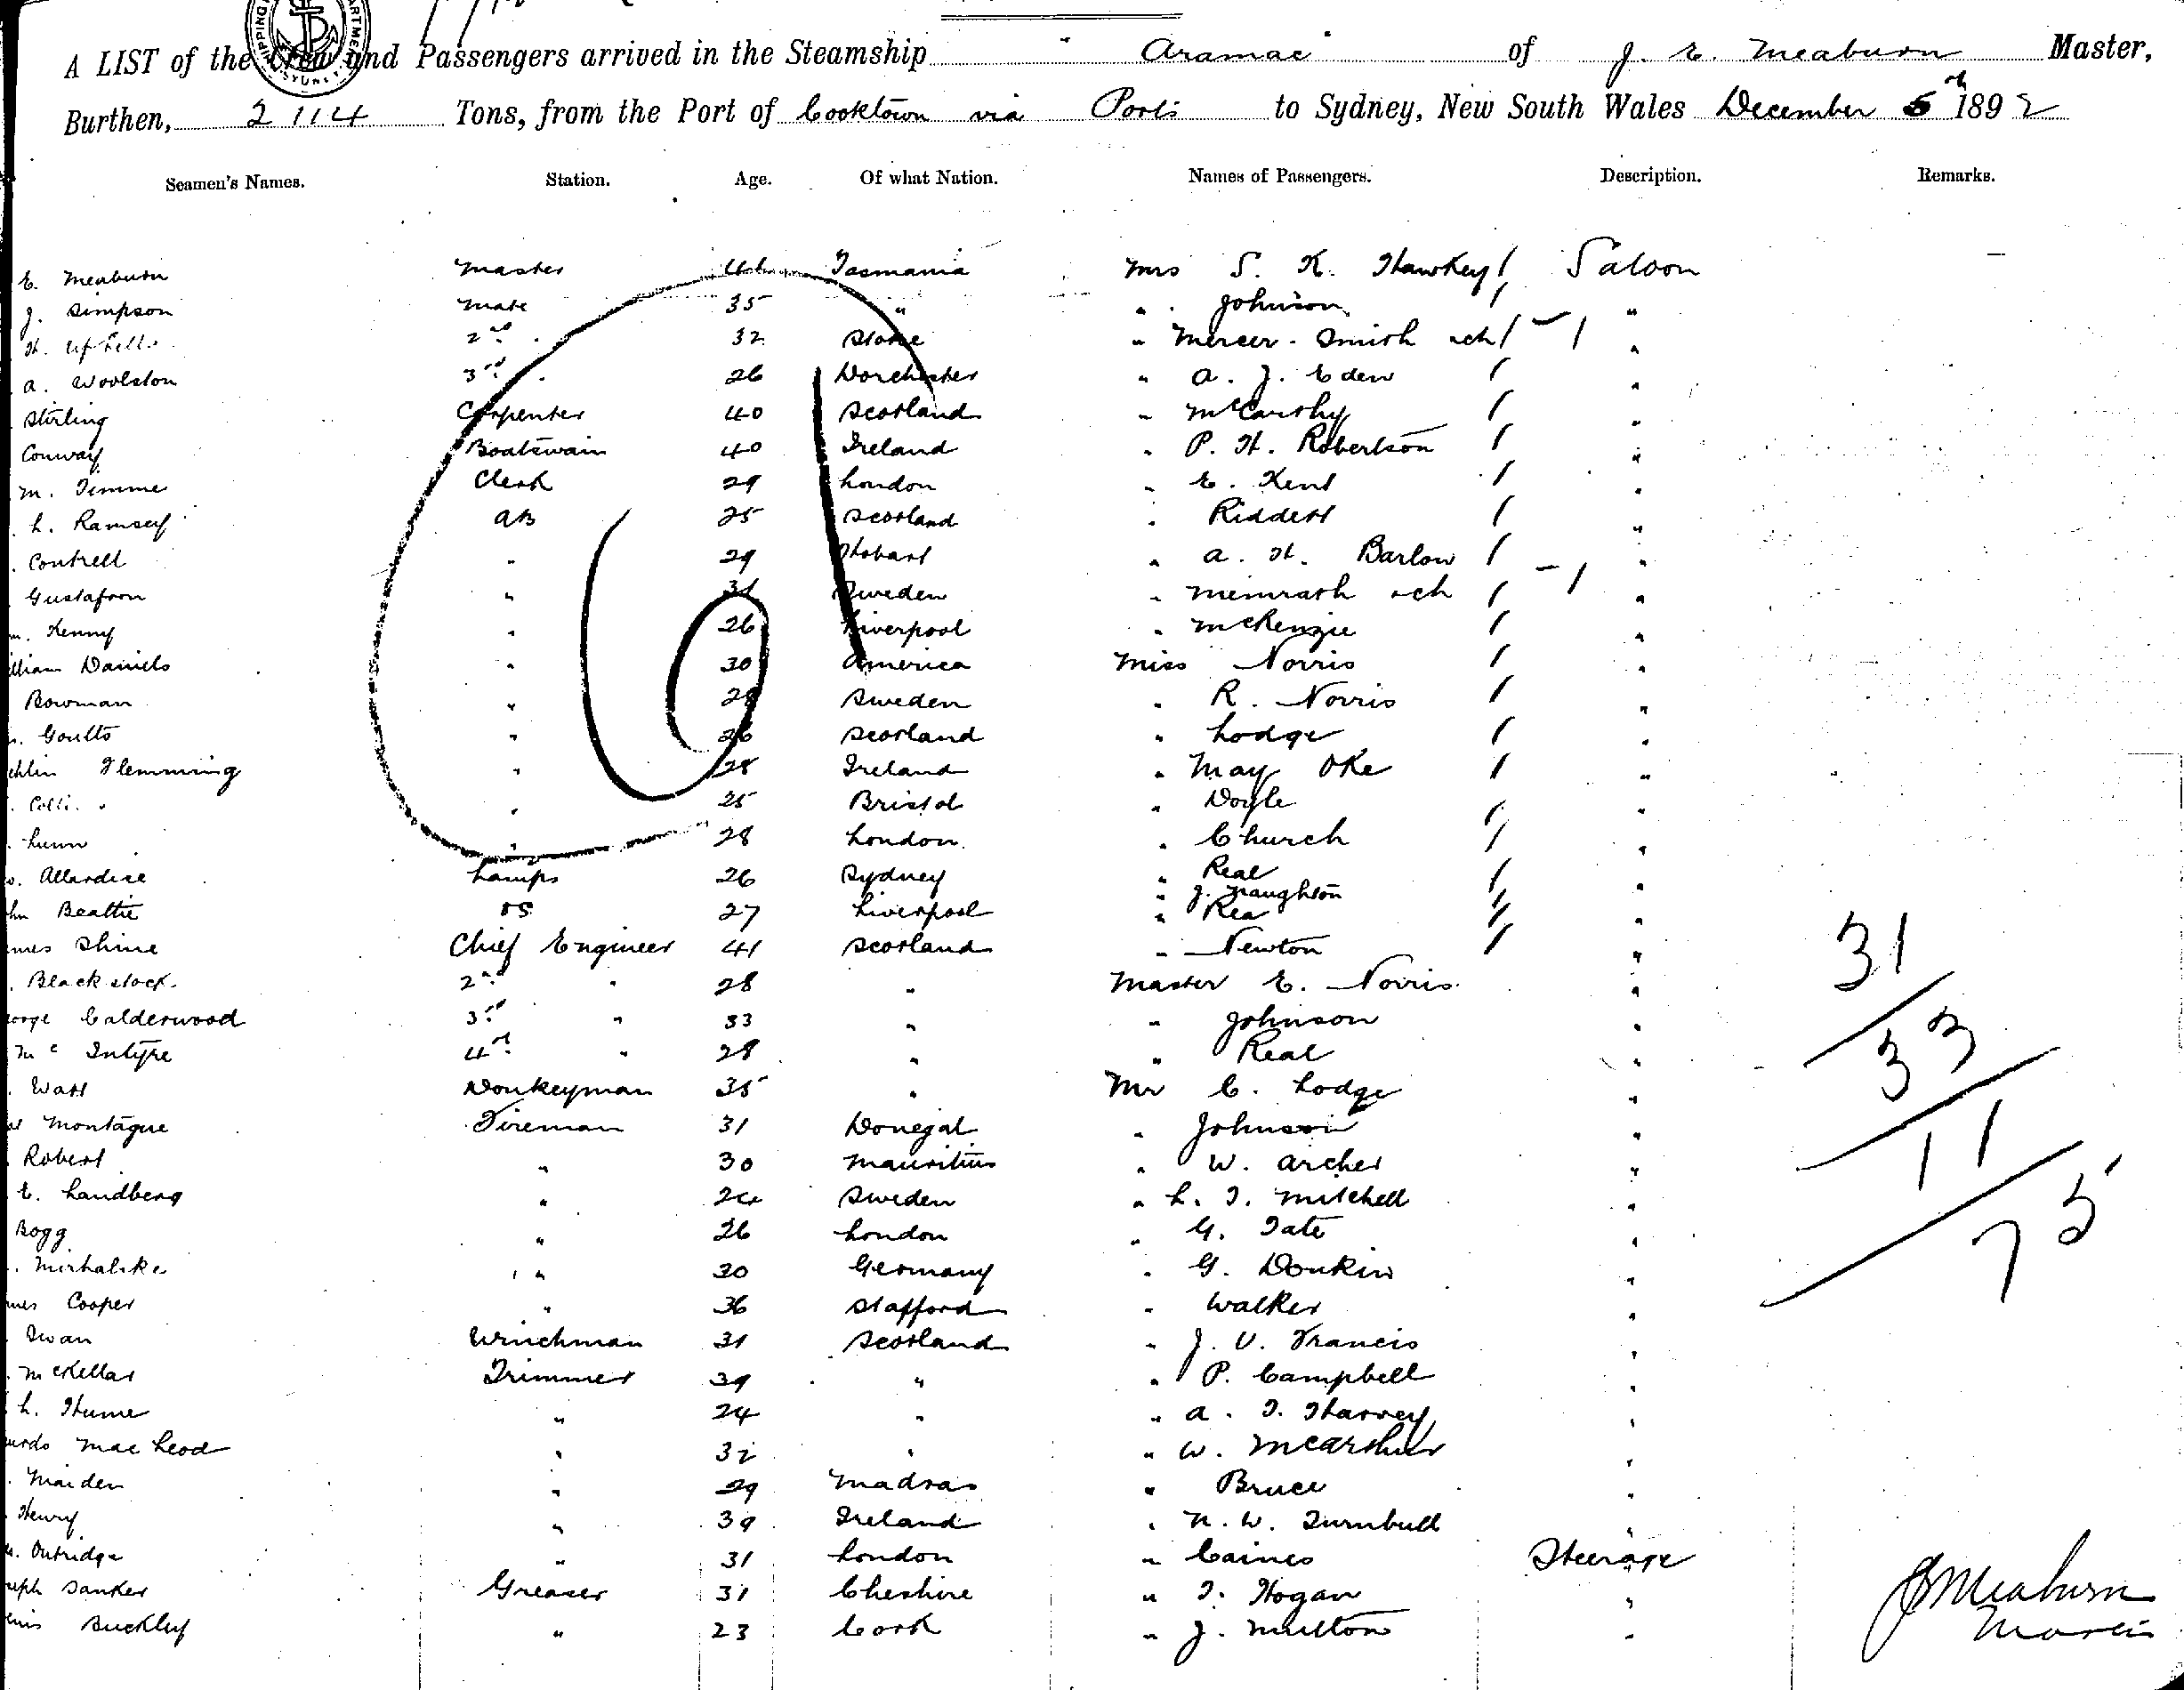 A LIST of the Crew and Passengers arrived in the Steamship "Aramac" of J. E. Meaburn Master,
Burthen, 2114 Tons, from the Port of Cooktown via Ports to Sydney, New South Wales December 5th 1892
Seamen's Names. Station. Age. Of what Nation. Names of Passengers. Description. Remarks.
E. Meaburn Master 44 Tasmania Mrs S. K. Hawkey / Saloon —
J. Simpson Mate 35 " " Johnson / "
H. Uphill 2nd " 32 Stoke " Mercer-Smith & ch / – / "
A. Woolston 3rd " 26 Dorchester " A. J. Eden / "
Stirling Carpenter 40 Scotland " McCarthy / "
Conway Boatswain 40 Ireland " P. H. Robertson / "
M. Timme Clerk 29 London " E. Kent / "
L. Ramsey AB 25 Scotland " Riddell / "
Contrell " 29 Hobart " A. H. Barlow / "
Gustafson " 31 Sweden " & ch / – / "
Kenny " 26 Liverpool " McKenzie / "
lliam Daniels " 30 America Miss Norris / "
Bowman " 28 Sweden " R. Norris / "
Goutts " 26 Scotland " Lodge / "
chlin Flemming " 28 Ireland " May Oke / "
" 25 Bristol " Doyle / "
Lunn " 28 London " Church / "
Allardice Lamps 26 Sydney " Real / "
" J. Naughton /
hn Beattie OS 27 Liverpool " Rea / "
mes Shine Chief Engineer 41 Scotland " Newton / " 31
Blackstock 2nd " 28 " Master E. Norris "
eorge Calderwood 3rd " 33 " " Johnson " 33
McIntyre 4th " 28 " " Real "
Watt Donkeyman 35 " Mr C. Lodge "
Montague Fireman 31 Donegal " Johnson " 11
Robert " 30 Mauritius " W. Archer "
E. Landberg " 24 Sweden " L. T. Mitchell " 75
Bogg " 26 London " G. Tate "
" 30 Germany " G. Donkin "
mes Cooper " 36 Stafford " Walker "
Swan Winchman 31 Scotland " J. V. Francis "
McKellar Trimmer 39 " " P. Campbell "
L. Hume " 24 " " A. T. Harvey "
urdo MacLeod " 32 " " W. McArthur "
Maiden " 29 Madras " Bruce "
Henry " 39 Ireland " N. W. Turnbull "
Outridge " 31 London " Caines Steerage
seph Danker Greaser 31 Cheshire " T. Hogan " J E Meaburn
nis Buckley " 23 Cork " J. Multon " Master